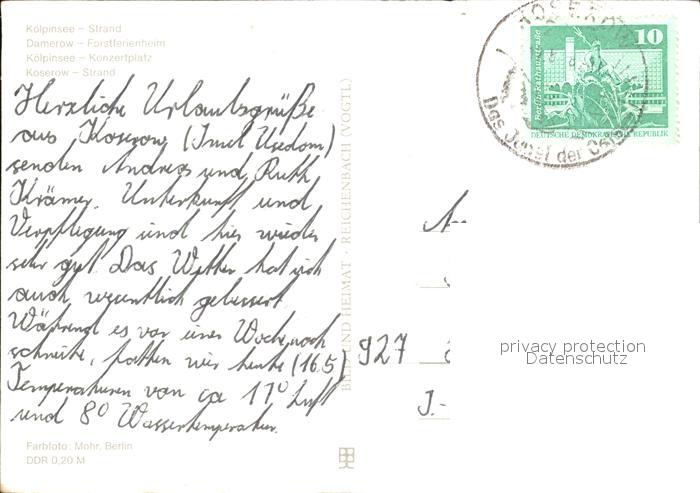 Kölpinsee – Strand
Damerow – Forstferienheim
Kölpinsee – Konzertplatz
Koserow – Strand
Herzliche Urlaubsgrüße
aus Koserow (Insel Usedom)
senden Andreas und Ruth
Krämer. Unterkunft und
Verpflegung sind hier wieder
sehr gut. Das Wetter hat sich
auch wesentlich gebessert.
Während es vor einer Woche noch
schneite, hatten wir heute (16.5)
Temperaturen von ca 17° Luft
und 8° Wassertemperatur.
Farbfoto: Mohr, Berlin
DDR 0,20 M
BILD UND HEIMAT · REICHENBACH (VOGTL)
KOSEROW
Das Juwel der
10
Berlin·Rathausstraße
DEUTSCHE DEMOKRATISCHE REPUBLIK
927
privacy protection
Datenschutz